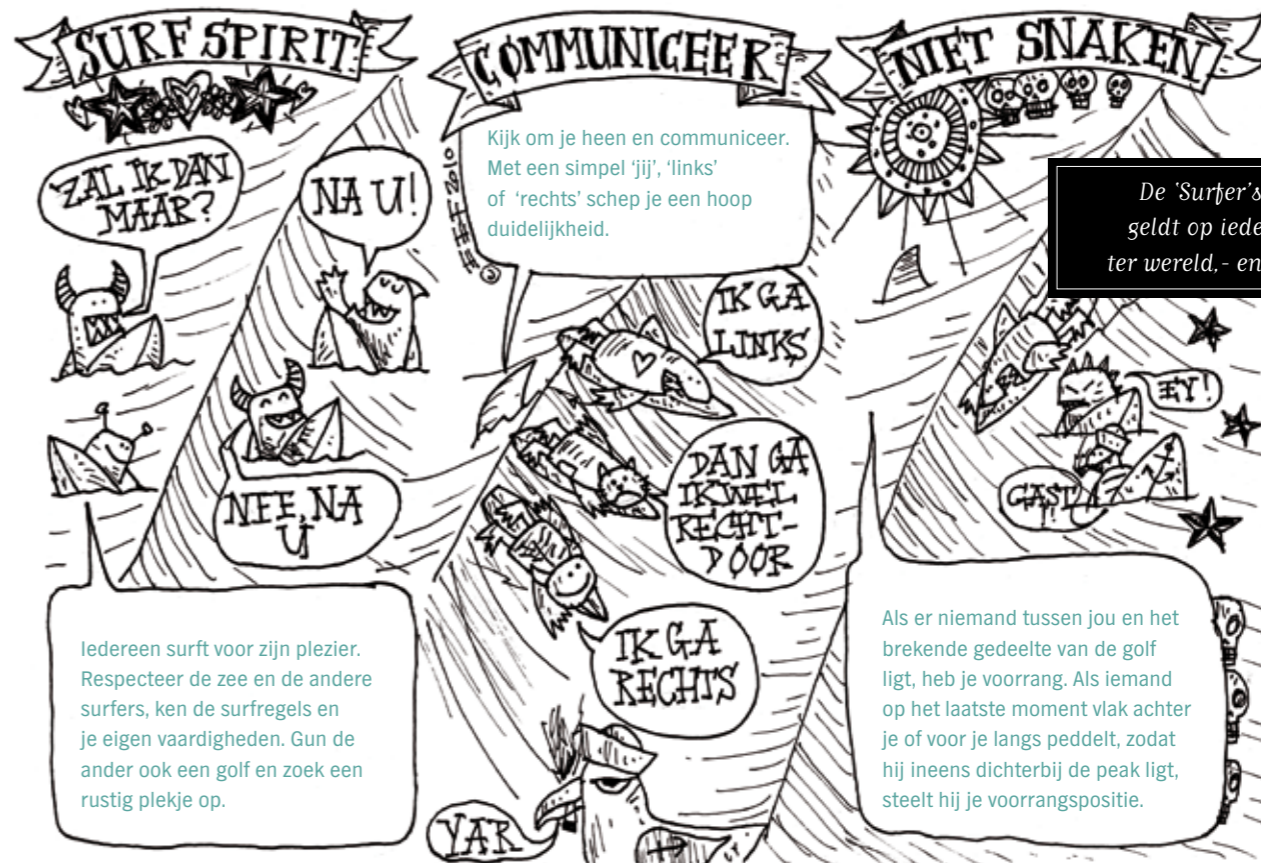 SURF SPIRIT
ZAL IK DAN
MAAR?
NA U!
NEE, NA
U
Iedereen surft voor zijn plezier.
Respecteer de zee en de andere
surfers, ken de surfregels en
je eigen vaardigheden. Gun de
ander ook een golf en zoek een
rustig plekje op.
COMMUNICEER
Kijk om je heen en communiceer.
Met een simpel ‘jij’, ‘links’
of ‘rechts’ schep je een hoop
duidelijkheid.
2010
IK GA
LINKS
DAN GA
IK WEL
RECHT-
DOOR
IK GA
RECHTS
YAR
NIET SNAKEN
De ‘Surfer’s
geldt op iede
ter wereld,- en
EY!
GAST!
Als er niemand tussen jou en het
brekende gedeelte van de golf
ligt, heb je voorrang. Als iemand
op het laatste moment vlak achter
je of voor je langs peddelt, zodat
hij ineens dichterbij de peak ligt,
steelt hij je voorrangspositie.